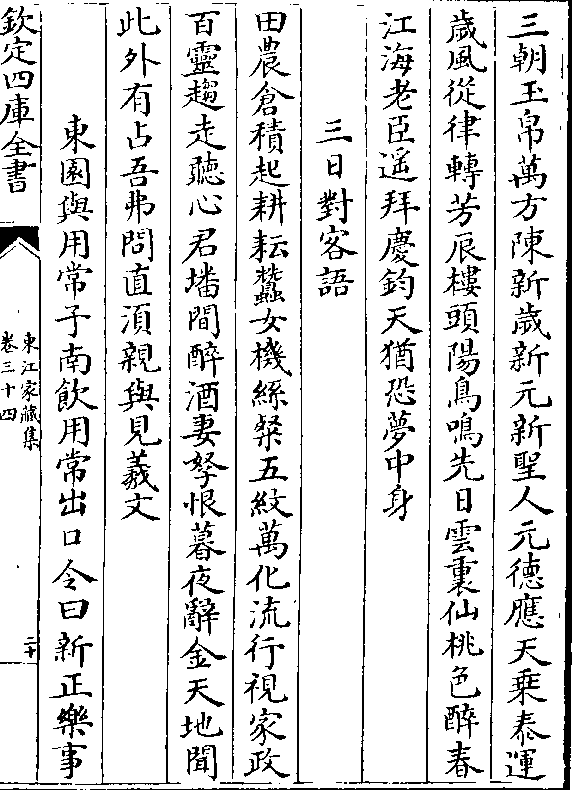 三朝玉帛萬方陳新歲新元新聖人元德應天乗泰運
歲風從律轉芳辰樓頭陽鳥鳴先日雲裏仙桃色醉春
江海老臣遥拜慶鈞天猶恐夢中身
三日對客語
田農倉積起耕耘蠶女機絲粲五紋萬化流行視家政
百靈趨走聽心君墦間醉酒妻孥恨暮夜辭金天地聞
此外有占吾弗問直須親與見羲文
東園與用常子南飲用常出口令曰新正樂事
欽定四庫全書
東江家藏集
卷三十四
二十